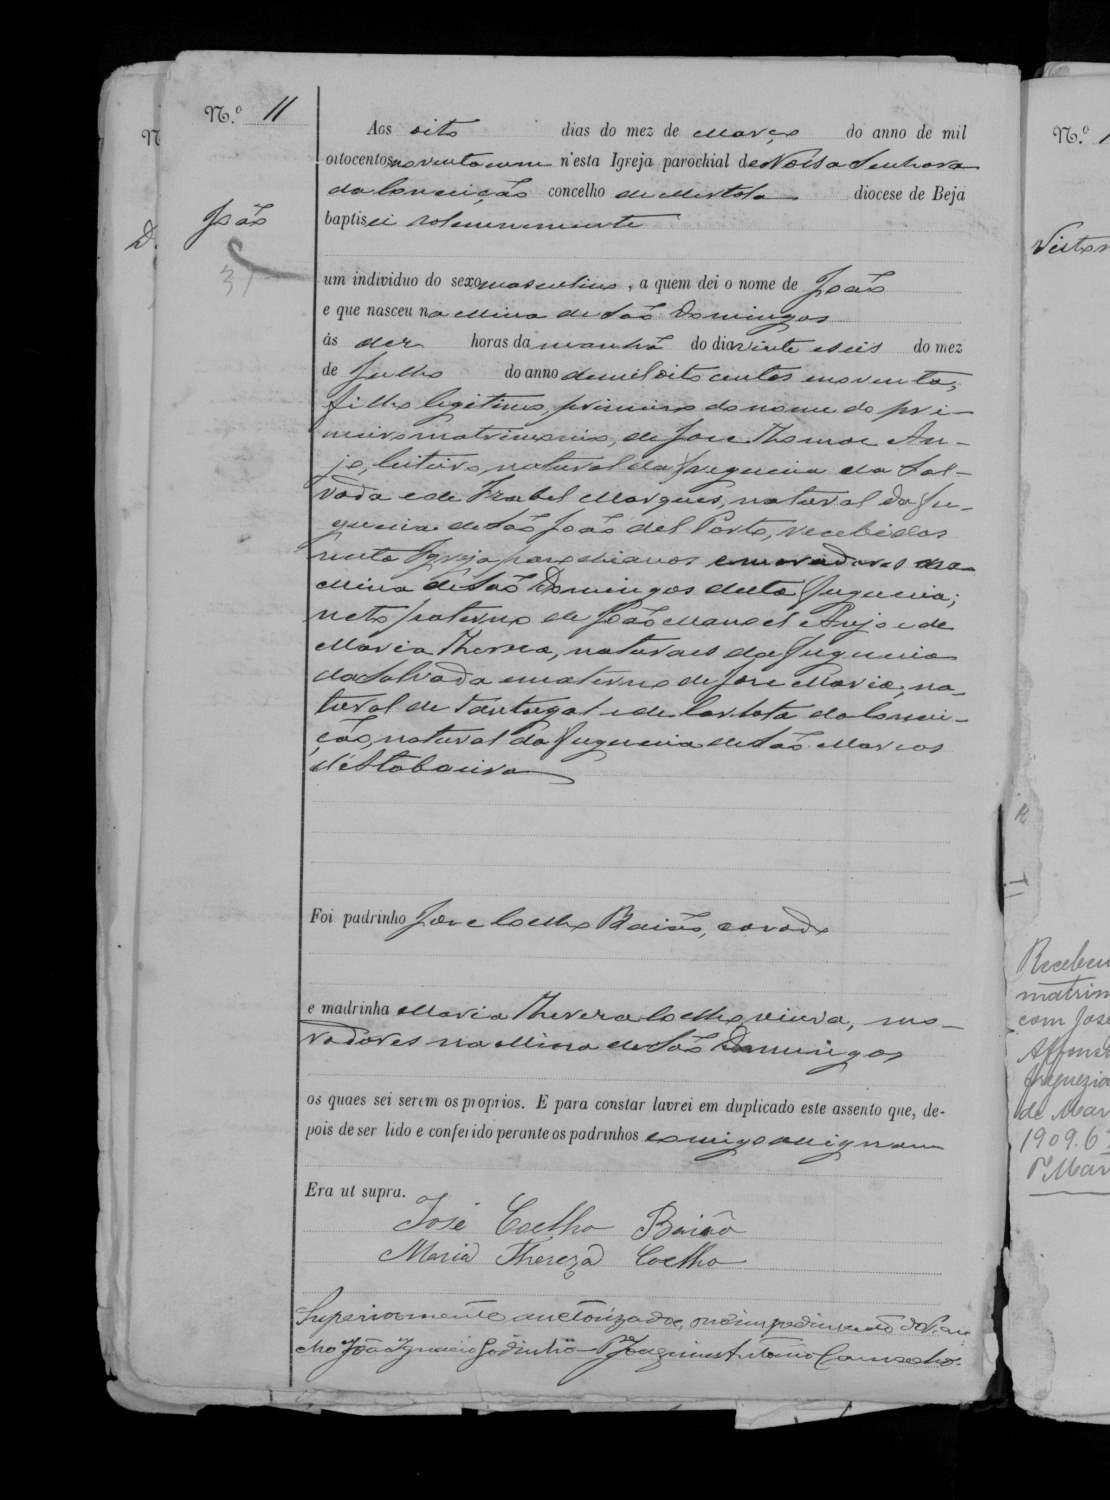 N.º 11
Aos oito dias do mez de Março do anno de mil
oitocentos noventa e um n'esta Igreja parochial de Nossa Senhora
da Conceição concelho de Mertola diocese de Beja
João
baptisei solemnemente
31
um individuo do sexo masculino, a quem dei o nome de João
e que nasceu na Mina de São Domingos
ás dez horas da manhã do dia vinte e seis do mez
de Julho do anno de mil oito centos e noventa,
filho legitimo, primeiro do nome do pri-
meiro matrimonio, de Jose Thomaz An-
jo, natural da freguezia da Sal-
vada e de Izabel Marques, natural da fre-
guezia de São João del Porto, recebidos
nesta Igreja parochianos e moradores na
Mina de São Domingos desta freguezia;
neto paterno de João Manoel Anjo e de
Maria Thereza, naturaes da freguezia
da Salvada e materno de Jose Maria, na-
tural de Portugal e de Carlota da Concei-
ção, natural da freguezia de São Marcos
d'Ataboeira
Foi padrinho Jose Coelho Baião, casado
e madrinha Maria Thereza Coelho, viuva, mo-
radores na Mina de São Domingos
os quaes sei serem os proprios. E para constar lavrei em duplicado este assento que, de-
pois de ser lido e conferido perante os padrinhos comigo assignam
Era ut supra.
José Coelho Baião
Maria Thereza Coelho
Superiormente auctorizado, no impedimento do
João Ignacio Godinho - P.e Joaquim Antonio
N.º
Recebeu
matrim
com José
Affonso
freguezia
de Mar
1909. 6
P. Mar